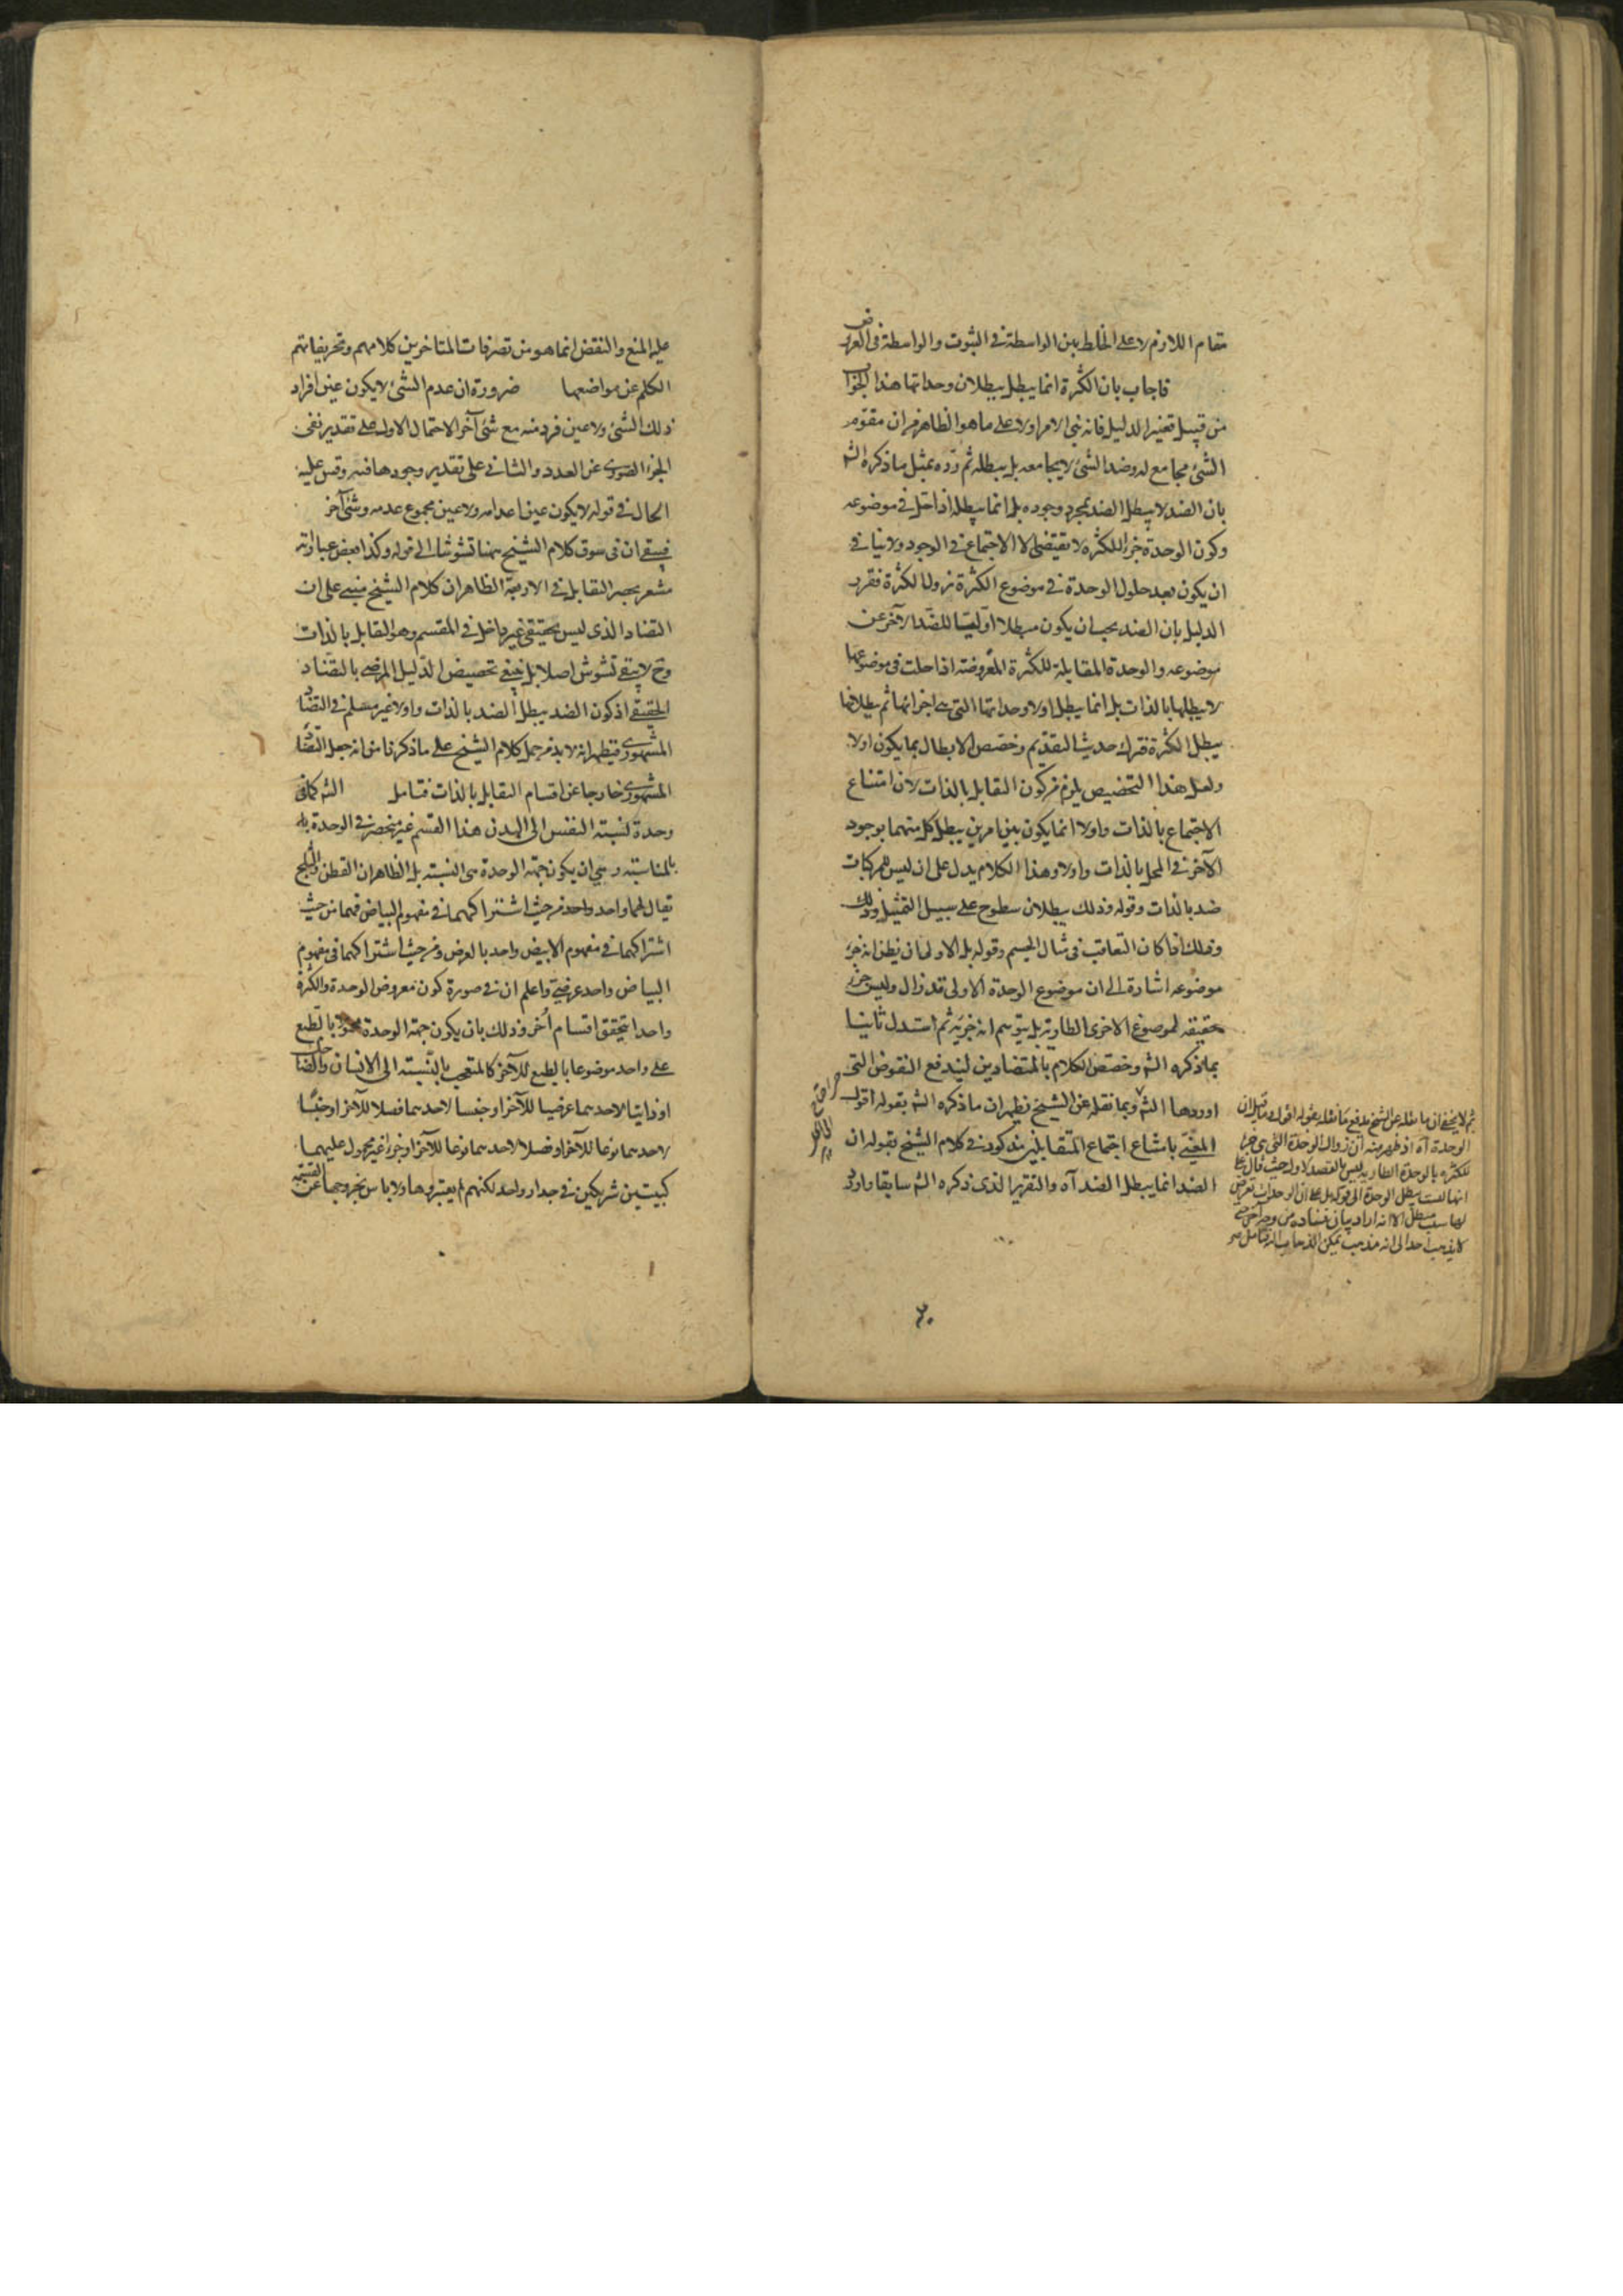 مقام اللازم لا على الخلط بين الواسطة في الثبوت والواسطة في العروض
فاجاب بان الكثرة انما يبطل ببطلان وحداتها هذا الجواب
من قبيل تغيير الدليل فانه بنى الامر اولا على ما هو الظاهر من ان مقوم
الشئ مجامع له وضد الشئ لا يجامعه بل يبطله ثم رده بمثل ما ذكره الش
بان الضد لا يبطل الضد بمجرد وجوده بل انما يبطله اذا حل في موضوعه
وكون الوحدة جزءا للكثرة لا تقتضى الا الاجتماع في الوجود ولا ينافي
ان يكون بعد حلول الوحدة في موضوع الكثرة نزول الكثرة فقرر
الدليل بان الضد يجب ان يكون مبطلا اوليا للضد الآخر عن
موضوعه والوحدة المقابلة للكثرة المعروضة اذا حلت في موضوعها
لا يبطلها بالذات بل انما يبطل اولا وحداتها التي هي اجزائها ثم ببطلانها
يبطل الكثرة فترك حديث التقديم وخصص الابطال بما يكون اولا
ولعل هذا التخصيص يلزم من كون التقابل بالذات لان امتناع
الاجتماع بالذات واولا انما يكون بين امرين يبطل كل منهما بوجود
الآخر في المحل بالذات واولا وهذا الكلام يدل على ان ليس للمركبات
ضد بالذات وقوله وذلك ببطلان سطوح على سبيل التمثيل وذلك
وذلك اذا كان التعاقب في مثال الجسم وقوله بل الاولى ان يظن انه جزء
موضوعه اشارة الى ان موضوع الوحدة الاولى قد زال وليس جزء
حقيقة لموضوع الاخرى الطارية بل يتوهم انه جزئه ثم استدل ثانيا
بما ذكره الش وخصص الكلام بالمتضادين ليندفع النقوض التي
اوردها الش وبما نقله عن الشيخ يظهر ان ما ذكره الش بقوله اقول
المعنى بامتناع اجتماع المتقابلين مذكور في كلام الشيخ بقوله ان
الضد انما يبطل الضد آه والتقرير الذي ذكره الش سابقا واورد
ثم لا يخفى ان ما نقله عن الشيخ يدفع ما نقله بقوله اقول ما قيل ان
الوحدة آه اذ ظهر منه ان زوال الوحدة التي هي جزء
للكثرة بالوحدة الطارية ليس بالقصد الاول حيث قال
انها ليست يبطل الوحدة الى قوله بل على ان الوحدات تعرض
لها سبب مبطل الا انه اراد بيان فساده من وجه آخر
لا يذهب احد الى انه مذهب يمكن الذهاب اليه فتامل
٣٠
عليه المنع والنقض انما هو من تصرفات المتاخرين كلامهم وتحريفاتهم
الكلم عن مواضعها ضرورة ان عدم الشئ لا يكون عين افراد
ذلك الشئ ولا عين فرد منه مع شئ آخر الاحتمال الاول على تقدير نفى
الجزء الصورى عن العدد والثاني على تقدير وجودها فيه وقس عليه
الحال في قوله لا يكون عين اعدامه ولا عين مجموع عدمه وشئ آخر
فبقى ان في سوق كلام الشيخ هنا تشوشا الى قوله وكذا بعض عباراته
مشعر بحصر التقابل في الاربعة الظاهر ان كلام الشيخ مبنى على ان
التضاد الذي ليس بحقيقي غير داخل في المقسم وهو التقابل بالذات
وح لا يبقى تشوش اصلا بل يبقى تخصيص الدليل المرضى بالتضاد
الحقيقي اذ كون الضد يبطل الضد بالذات واولا غير مسلم في التضاد
المشهورى فيظهر انه لا بد من حمل كلام الشيخ على ما ذكرنا من انه جعل التضاد
المشهورى خارجا عن اقسام التقابل بالذات فتامل الش كما في
وحدة نسبة النفس الى البدن هذا القسم غير منحصر في الوحدة بل
بالمناسبة وهي ان يكون جهة الوحدة هي النسبة بل الظاهر ان القطن والثلج
يقال لهما واحد واحد من حيث اشتراكهما في مفهوم البياض فهما من حيث
اشتراكهما في مفهوم الابيض واحد بالعرض ومن حيث اشتراكهما في مفهوم
البياض واحد عرضى واعلم ان في صورة كون معروض الوحدة والكثرة
واحدا يتحقق اقسام أخر وذلك بان يكون جهة الوحدة محمولا بالطبع
على واحد موضوعا بالطبع للآخر كالمتعجب بالنسبة الى الانسان والضاحك
او ذاتيا لاحدهما عرضيا للآخر او جنسا لاحدهما فصلا للآخر او جنسا
لاحدهما نوعا للآخر او فصلا لاحدهما نوعا للآخر او جزءا غير محمول عليهما
كبيتين شريكين في جدار واحد لكنهم لم يعتبروها ولا باس بخروجها عن القسمة